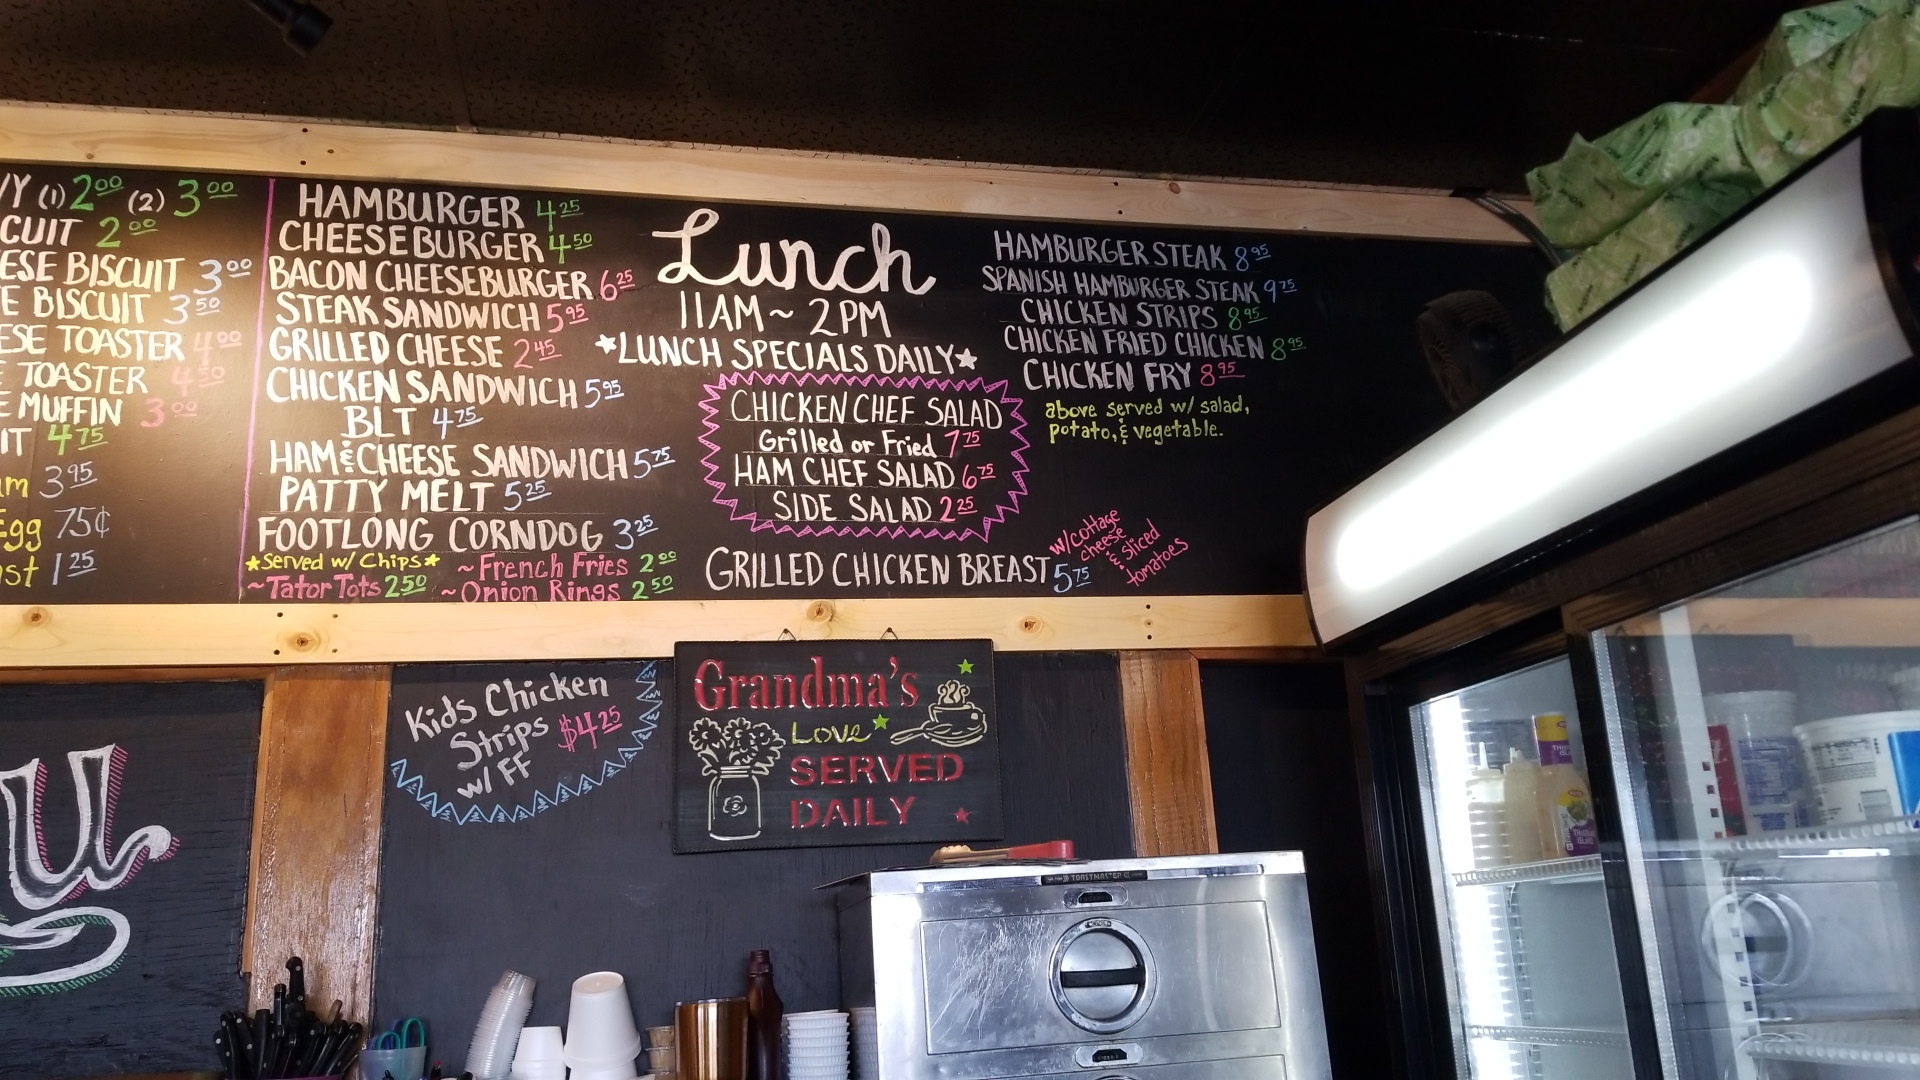 (1) 2.00 (2) 3.00
2.00
BISCUIT 3.00
BISCUIT 3.50
TOASTER 4.00
TOASTER 4.50
MUFFIN 3.00
4.75
3.95
Egg 75¢
1.25
HAMBURGER 4.25
CHEESEBURGER 4.50
BACON CHEESEBURGER 6.25
STEAK SANDWICH 5.95
GRILLED CHEESE 2.45
CHICKEN SANDWICH 5.95
BLT 4.75
HAM & CHEESE SANDWICH 5.75
PATTY MELT 5.25
FOOTLONG CORNDOG 3.25
★Served w/ Chips★
~French Fries 2.00
~Tator Tots 2.50
~Onion Rings 2.50
Lunch
11AM~2PM
★LUNCH SPECIALS DAILY★
CHICKEN CHEF SALAD
Grilled or Fried 7.75
HAM CHEF SALAD 6.75
SIDE SALAD 2.25
GRILLED CHICKEN BREAST 5.75
w/cottage
cheese
& sliced
tomatoes
HAMBURGER STEAK 8.95
SPANISH HAMBURGER STEAK 9.75
CHICKEN STRIPS 8.95
CHICKEN FRIED CHICKEN 8.95
CHICKEN FRY 8.95
above served w/ salad,
potato, & vegetable.
Kids Chicken
Strips $4.25
w/ FF
Grandma's
LOVE
SERVED
DAILY
TOASTMASTER